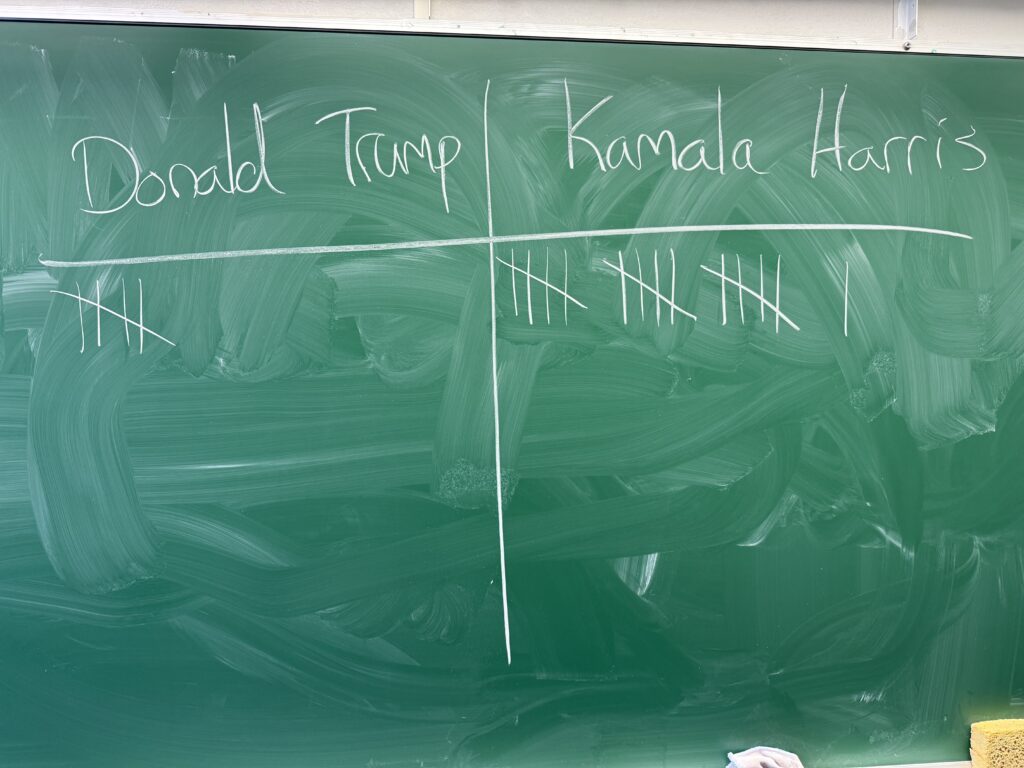 Donald Trump Kamala Harris